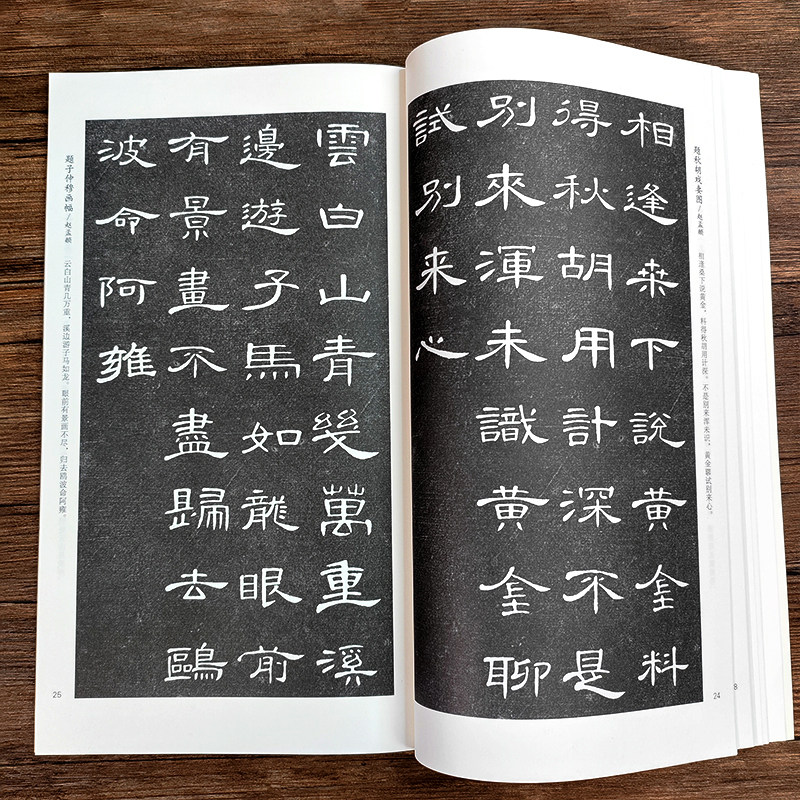 题秋胡戏妻图／赵孟頫
相逢桑下说黄金，料得秋胡用计深。不是别来浑未识，黄金聊试别来心。
相逢桒下說黄金料
得秋胡用計深不是
别來渾未識黄金聊
試别来心
24
8
题子仲穆画幅／赵孟頫
云白山青几万重，溪边游子马如龙。眼前有景画不尽，归去鸥波命阿雍。
雲白山青幾萬重溪
邊遊子馬如龍眼前
有景畫不盡歸去鷗
波命阿雍
25